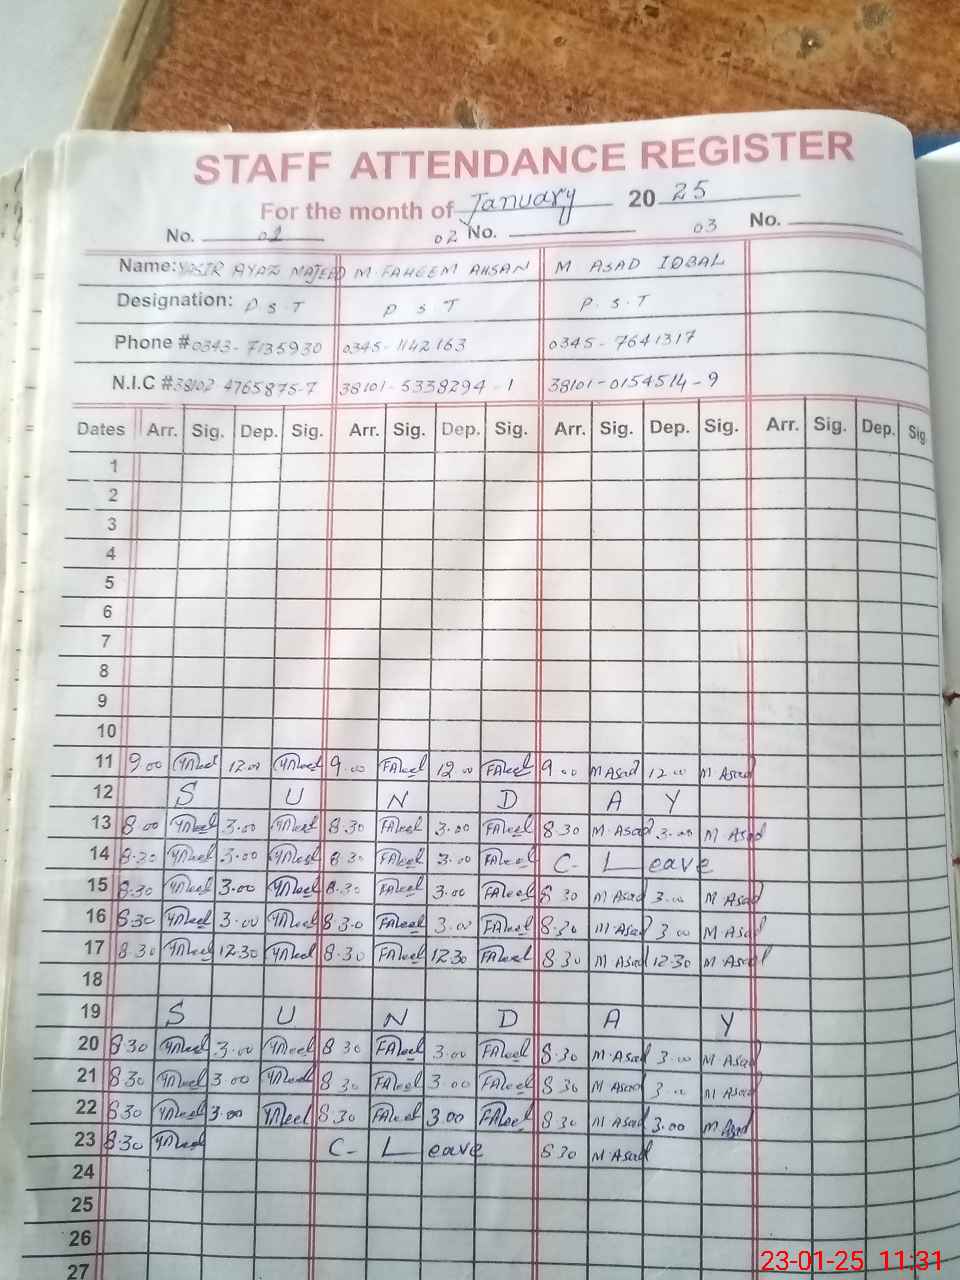 STAFF ATTENDANCE REGISTER
For the month of January 2025
No. 01 02 No. 03 No.
Name: YASIR AYAZ MAJEED M FAHEEM AHSAN M ASAD IQBAL
Designation: P.S.T P S T P.S.T
Phone # 0343-7135930 0345-1142163 0345-7641317
N.I.C # 38102 4765875-7 38101-5338294-1 38101-0154514-9
Dates Arr. Sig. Dep. Sig. Arr. Sig. Dep. Sig. Arr. Sig. Dep. Sig. Arr. Sig. Dep. Sig.
1
2
3
4
5
6
7
8
9
10
11 9.00 12.00 9.00 12.00 9.00 M Asad 12.00 M Asad
12 S U N D A Y
13 8.00 3.00 8.30 3.00 8.30 M Asad 3.00 M Asad
14 8.30 3.00 8.30 3.00 C- Leave
15 8.30 3.00 8.30 3.00 8.30 M Asad 3.00 M Asad
16 8.30 3.00 8.30 3.00 8.30 M Asad 3.00 M Asad
17 8.30 12.30 8.30 12.30 8.30 M Asad 12.30 M Asad
18
19 S U N D A Y
20 8.30 3.00 8.30 3.00 8.30 M Asad 3.00 M Asad
21 8.30 3.00 8.30 3.00 8.30 M Asad 3.00 M Asad
22 8.30 3.00 8.30 3.00 8.30 M Asad 3.00 M Asad
23 8.30 C- Leave 8.30 M Asad
24
25
26
27
23-01-25 11:31